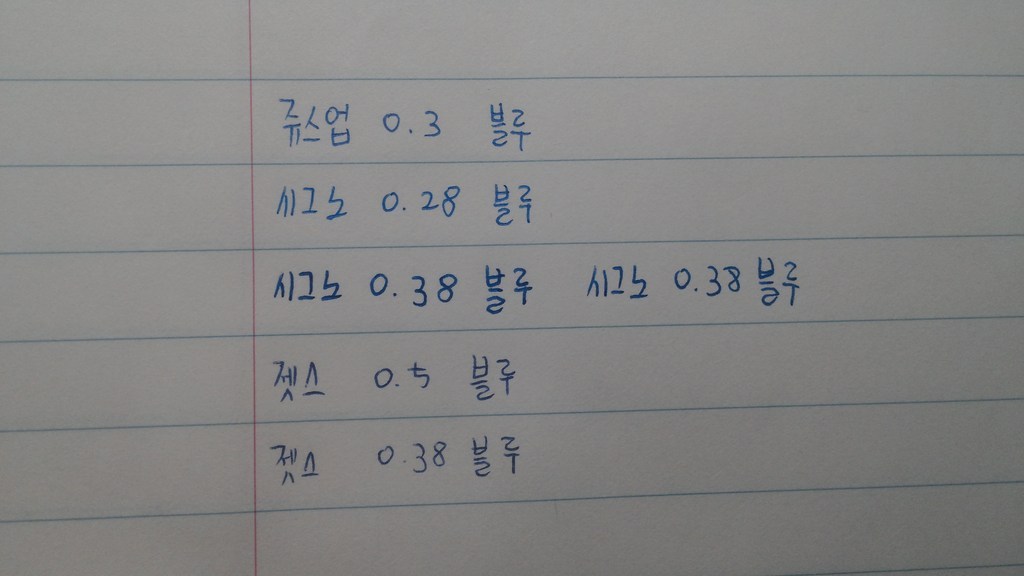 쥬스업 0.3 블루
시그노 0.28 블루
시그노 0.38 블루 시그노 0.38 블루
젯스 0.5 블루
젯스 0.38 블루